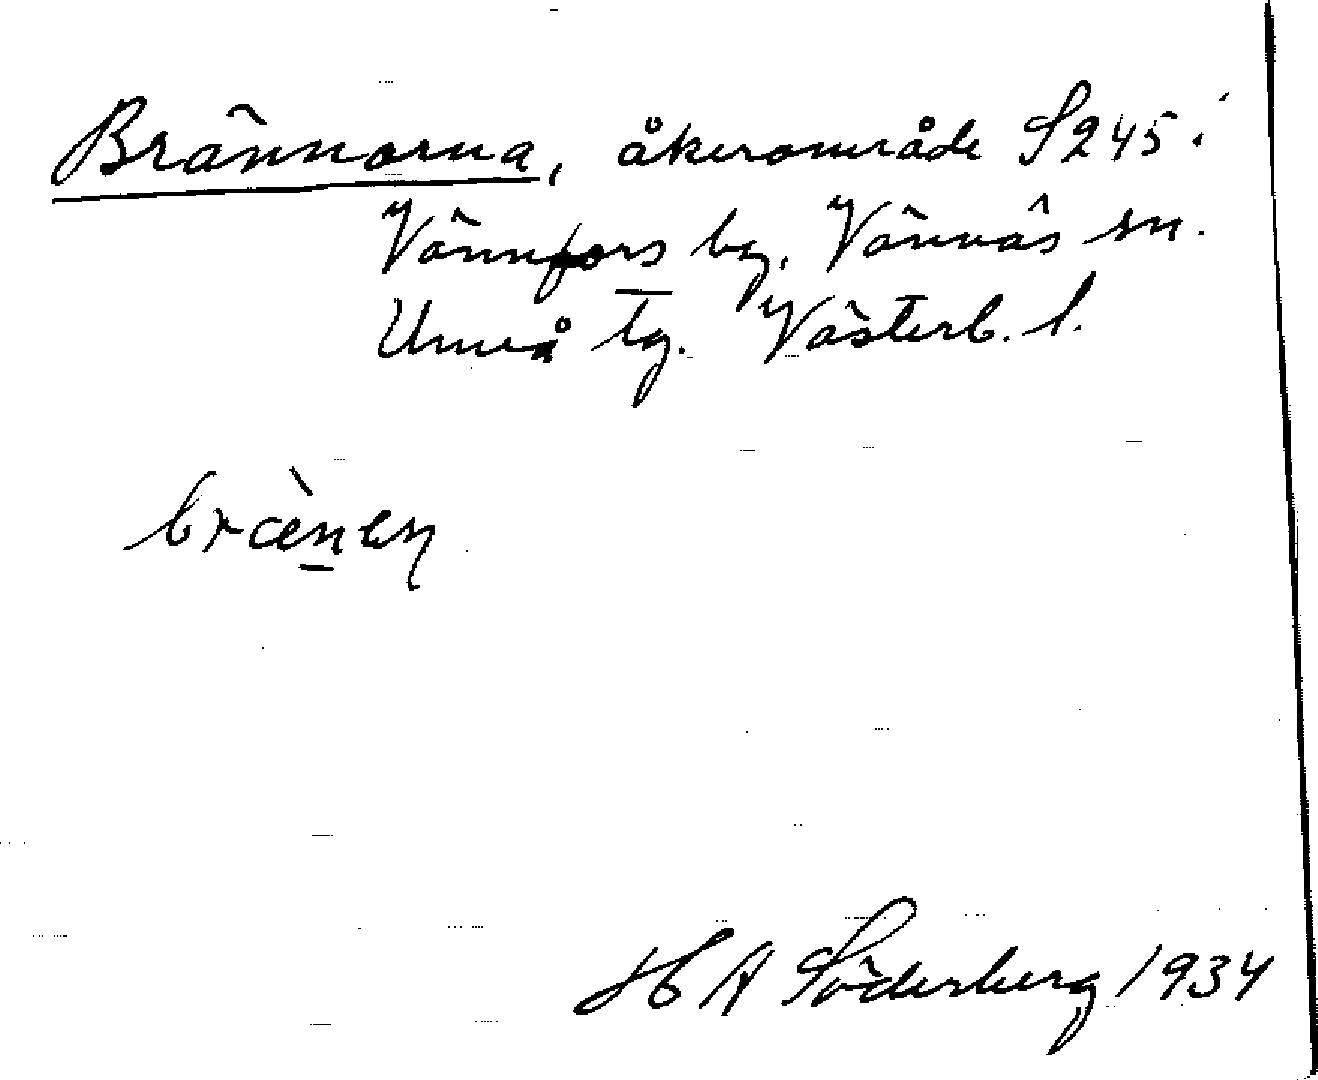 Brännorna, åkerområde S245 i
Vännfors by. Vännäs sn.
Umeå tg. Västerb. l.
bræ̀nen
H A Söderberg 1934